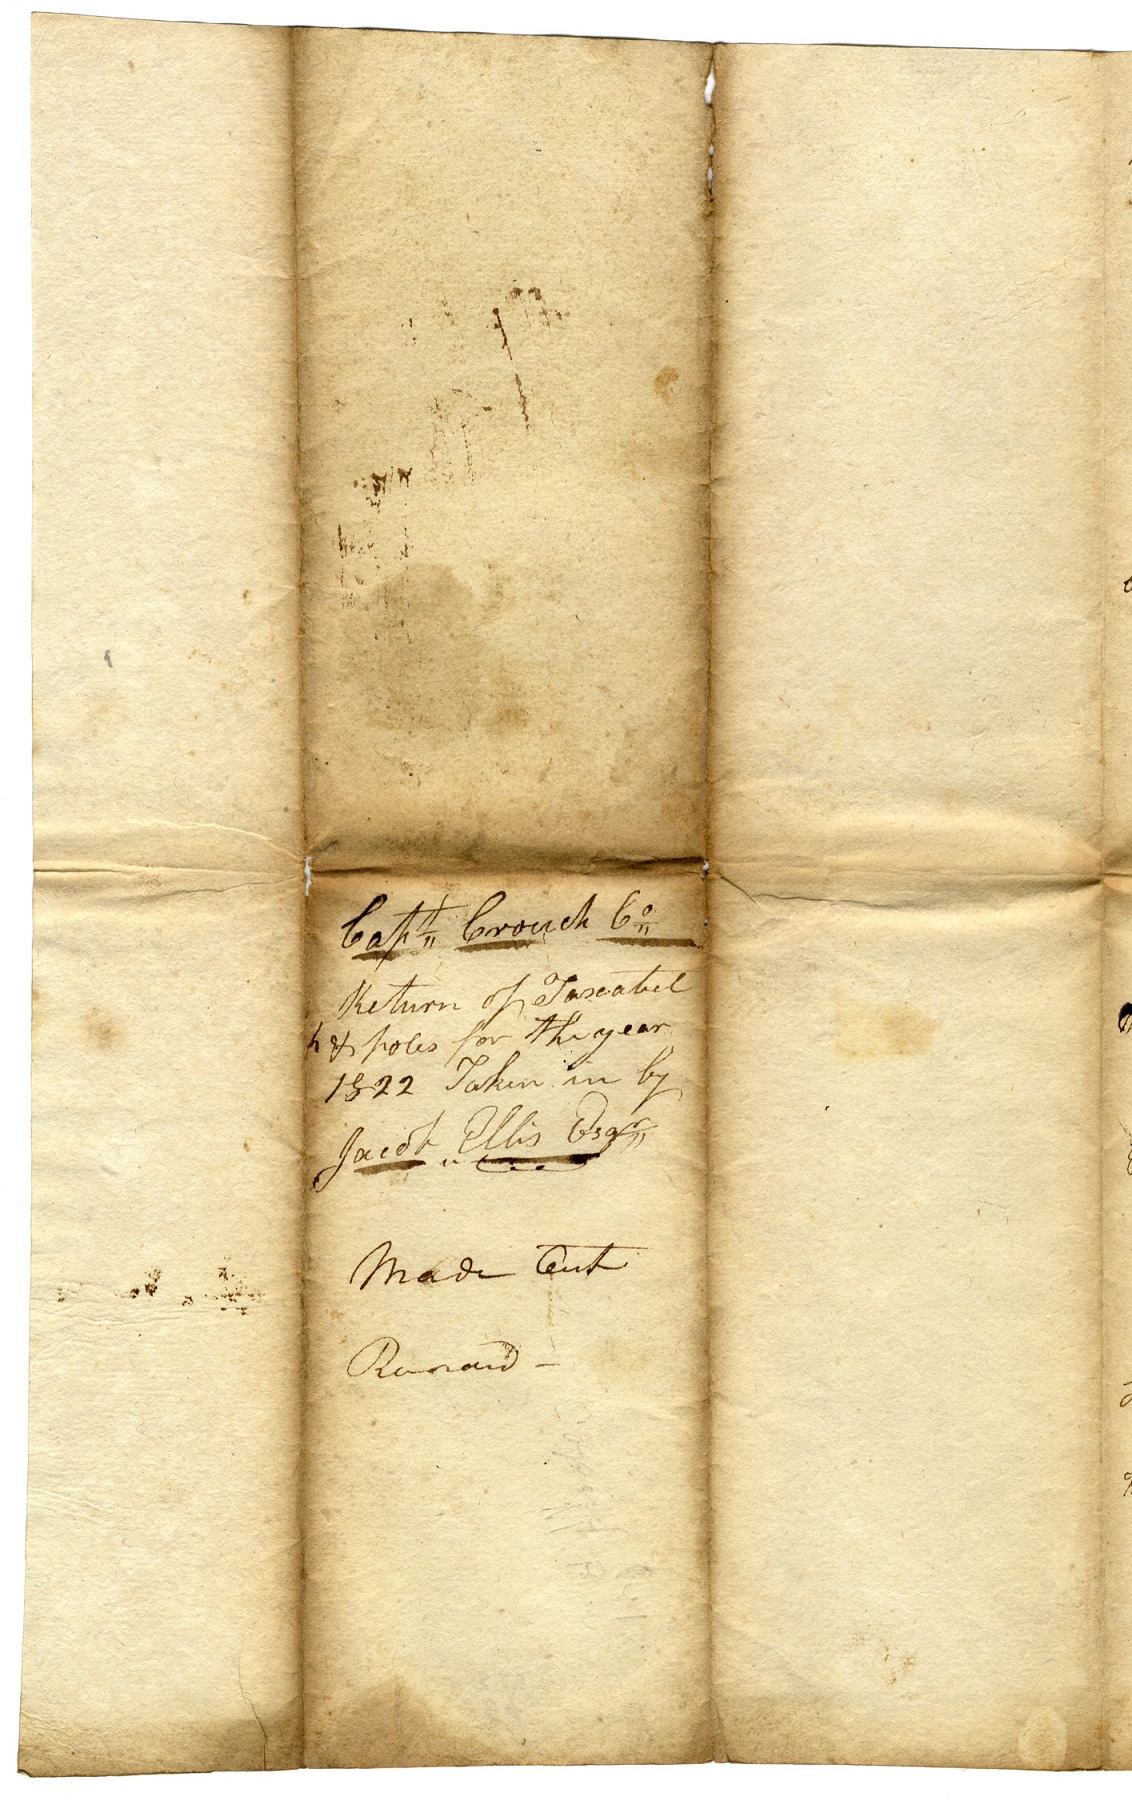 Capt Crouch Co
Return of Taxeabel
p & poles for the year
1822 Taken in by
Jacob Ellis Esqr
Made Out